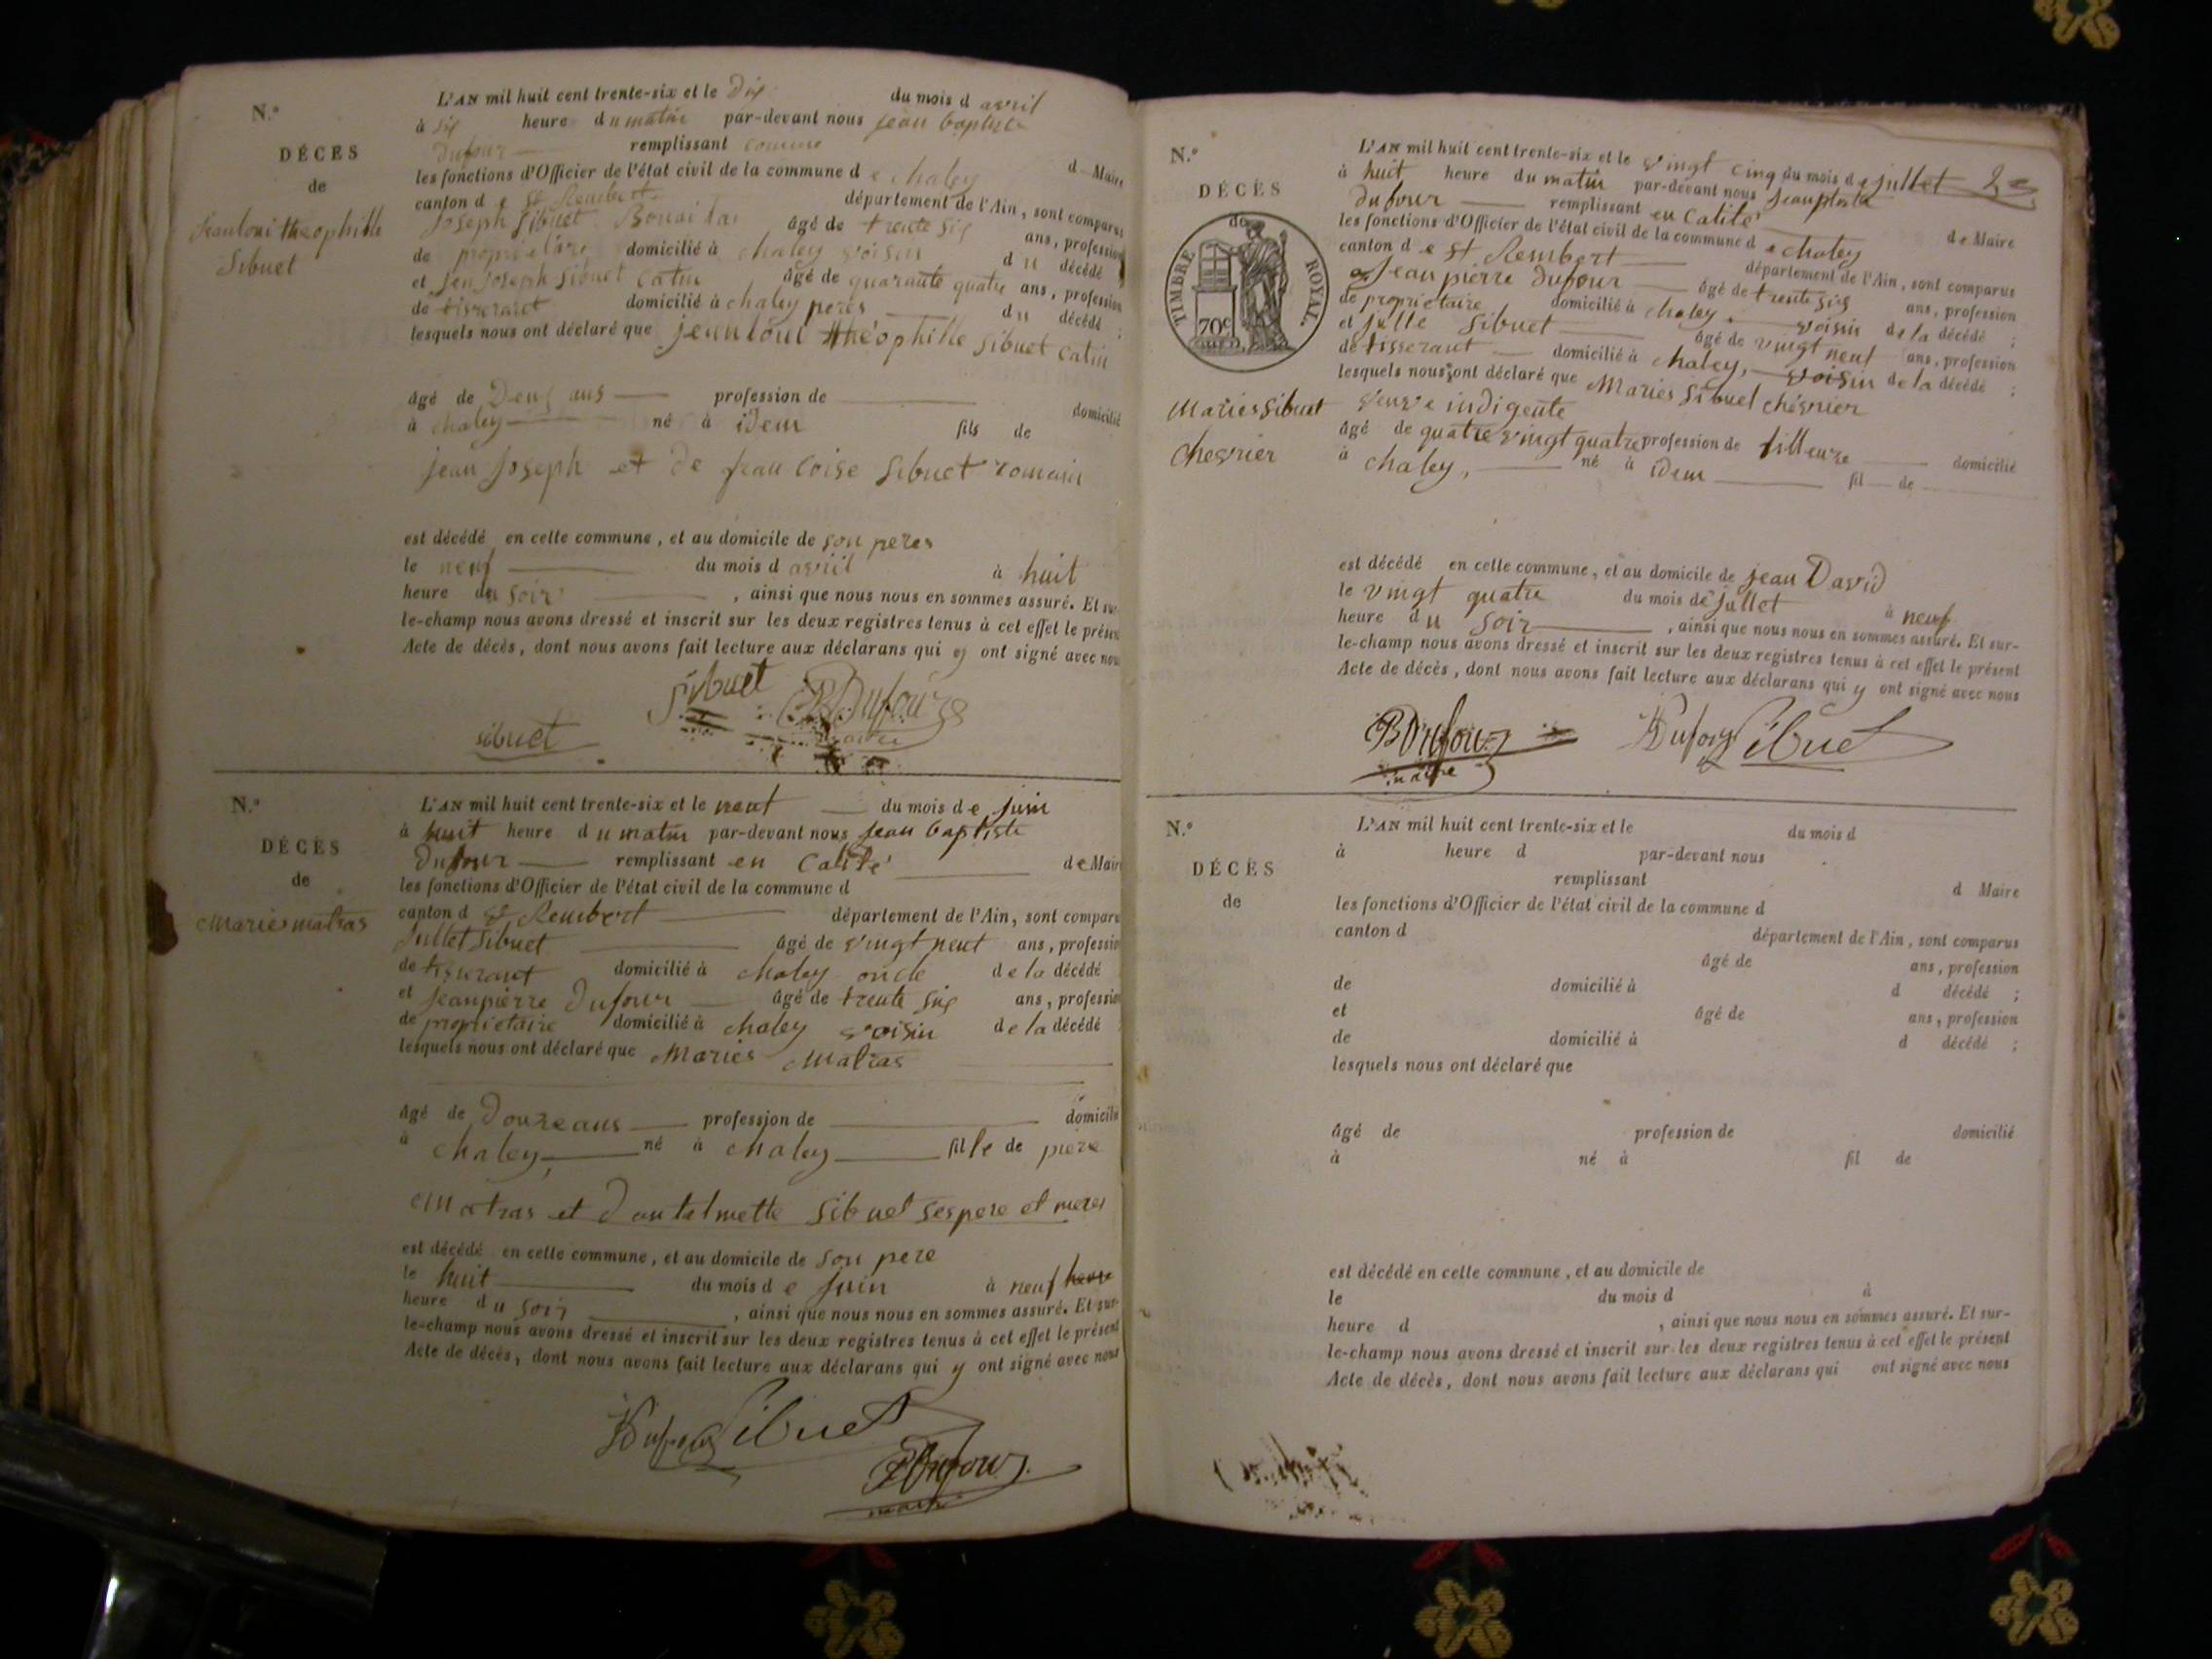 N.°
DÉCES
de
Jeanloui theophille
Sibuet
L'AN mil huit cent trente-six et le dix du mois d avril
à six heure du matin par-devant nous jean baptiste
Dufour remplissant comme d Maire
les fonctions d'Officier de l'état civil de la commune de chaley
canton d e St Rembert département de l'Ain, sont comparus
Joseph Sibuet âgé de trente six ans, profession
de propriétaire domicilié à chaley voisin du décédé
et jen Joseph Sibuet Catin âgé de quarante quatre ans, profession
de tisserant domicilié à chaley peres du décédé ;
lesquels nous ont déclaré que jeanloui théophille Sibuet Catin
âgé de Deux ans profession de domicilié
à chaley né à idem fils de
jean Joseph et de francoise Sibuet romain
est décédé en cette commune, et au domicile de son peres
le neuf du mois d avril à huit
heure du soir , ainsi que nous nous en sommes assuré. Et sur-
le-champ nous avons dressé et inscrit sur les deux registres tenus à cet effet le présent
Acte de décès, dont nous avons fait lecture aux déclarans qui y ont signé avec nous
Sibuet JB Dufour
sibuet maire
N.°
DÉCÈS
de
Maries matras
L'AN mil huit cent trente-six et le neuf du mois de juin
à huit heure du matin par-devant nous jean baptiste
Dufour remplissant en Calité de Maire
les fonctions d'Officier de l'état civil de la commune d
canton d St Rembert département de l'Ain, sont comparu
Jullet Sibuet âgé de vingt neuf ans, profession
de tisserant domicilié à chaley oncle de la décédé
et Jeanpierre Dufour âgé de trente six ans, profession
de propriétaire domicilié à chaley voisin de la décédé
lesquels nous ont déclaré que Maries Matras
âgé de Douzeans profession de domicilié
à chaley, né à chaley fille de piere
Matras et Sibuet ses pere et meres
est décédé en cette commune, et au domicile de son pere
le huit du mois de juin à neuf heure
heure du soir , ainsi que nous nous en sommes assuré. Et sur-
le-champ nous avons dressé et inscrit sur les deux registres tenus à cet effet le présent
Acte de décès, dont nous avons fait lecture aux déclarans qui y ont signé avec nous
Dufour Sibuet
JB Dufour
maire
N.°
DÉCÈS
de
TIMBRE ROYAL.
70c
Maries Sibuet
Chevrier
L'AN mil huit cent trente-six et le vingt cinq du mois de jullet
à huit heure du matin par-devant nous
Dufour remplissant en Calité de Maire
les fonctions d'Officier de l'état civil de la commune de chaley
canton d e St Rembert département de l'Ain, sont comparus
Jean pierre Dufour âgé de trente six ans, profession
de propriétaire domicilié à chaley. voisin de la décédé ;
et jullè Sibuet âgé de vingt neuf ans, profession
de tisserant domicilié à chaley, voisin de la décédé ;
lesquels nous ont déclaré que Maries Sibuet chévrier
veuve indigente
âgé de quatre vingt quatre profession de filleuze domicilié
à chaley, né à idem fil de
est décédé en cette commune, et au domicile de jean David
le vingt quatre du mois de jullet à neuf
heure du soir , ainsi que nous nous en sommes assuré. Et sur-
le-champ nous avons dressé et inscrit sur les deux registres tenus à cet effet le présent
Acte de décès, dont nous avons fait lecture aux déclarans qui y ont signé avec nous
JB Dufour Dufour Sibuet
maire
N.°
DÉCÈS
de
L'AN mil huit cent trente-six et le du mois d
à heure d par-devant nous
remplissant d Maire
les fonctions d'Officier de l'état civil de la commune d
canton d département de l'Ain, sont comparus
âgé de ans, profession
de domicilié à d décédé ;
et âgé de ans, profession
de domicilié à d décédé ;
lesquels nous ont déclaré que
âgé de profession de domicilié
à né à fil de
est décédé en cette commune, et au domicile de
le du mois d à
heure d , ainsi que nous nous en sommes assuré. Et sur-
le-champ nous avons dressé et inscrit sur les deux registres tenus à cet effet le présent
Acte de décès, dont nous avons fait lecture aux déclarans qui ont signé avec nous